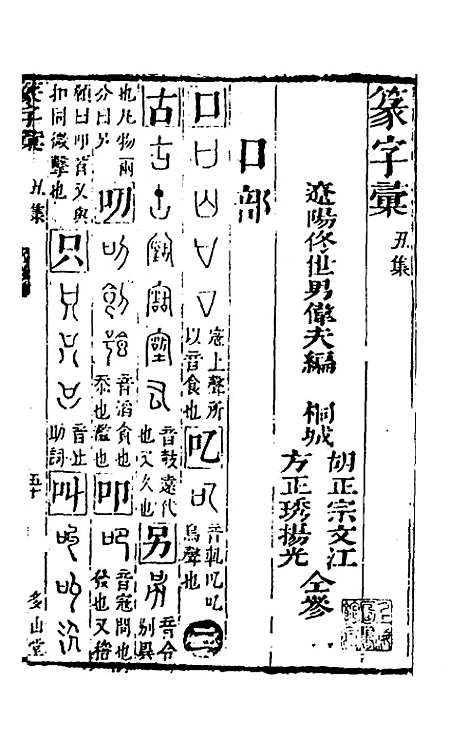 篆字彙 丑集
遼陽佟世男偉夫編 桐城
胡正宗文江
方正琇揚光
仝參
口部
口 上聲所
以言食也
吃 音乩吃吃
鳥聲也
二
古 音鼓遠代
也又久也
另 音令
別異
也凡物兩
分曰另
叨 音滔食也
忝也濫也
叩 音寇問也
發也又揩
顙曰叩首又與
扣同微擊也
只 音止
助詞
叫
篆字彙 丑集
五十
多山堂